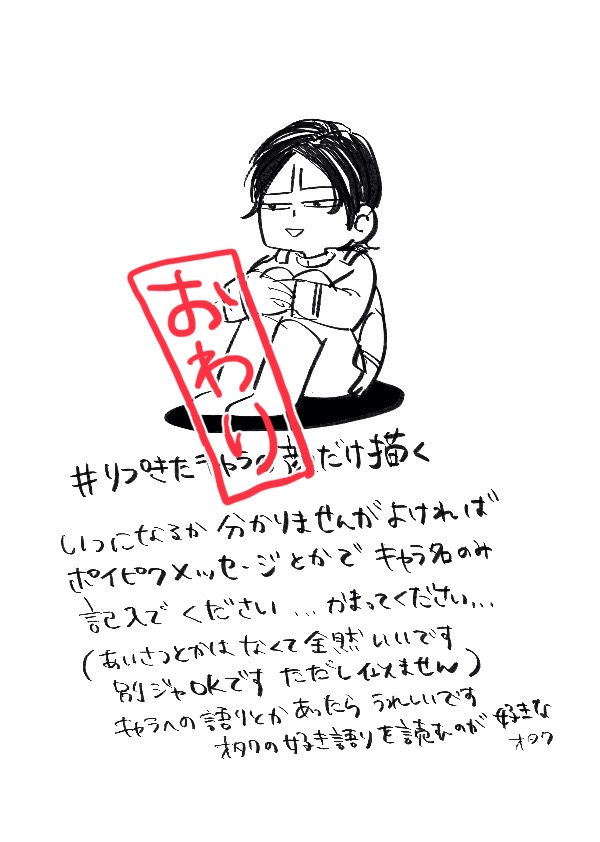 おわり
#りぷきたキャラの顔だけ描く
いつになるか分かりませんがよければ
ポイピクメッセージとかでキャラ名のみ
記入でください…かまってください…
(あいさつとかはなくて全然いいです
別ジャOKです ただし似えません)
キャラへの語りとかあったらうれしいです
オタクの好き語りを読むのが好きな
オタク